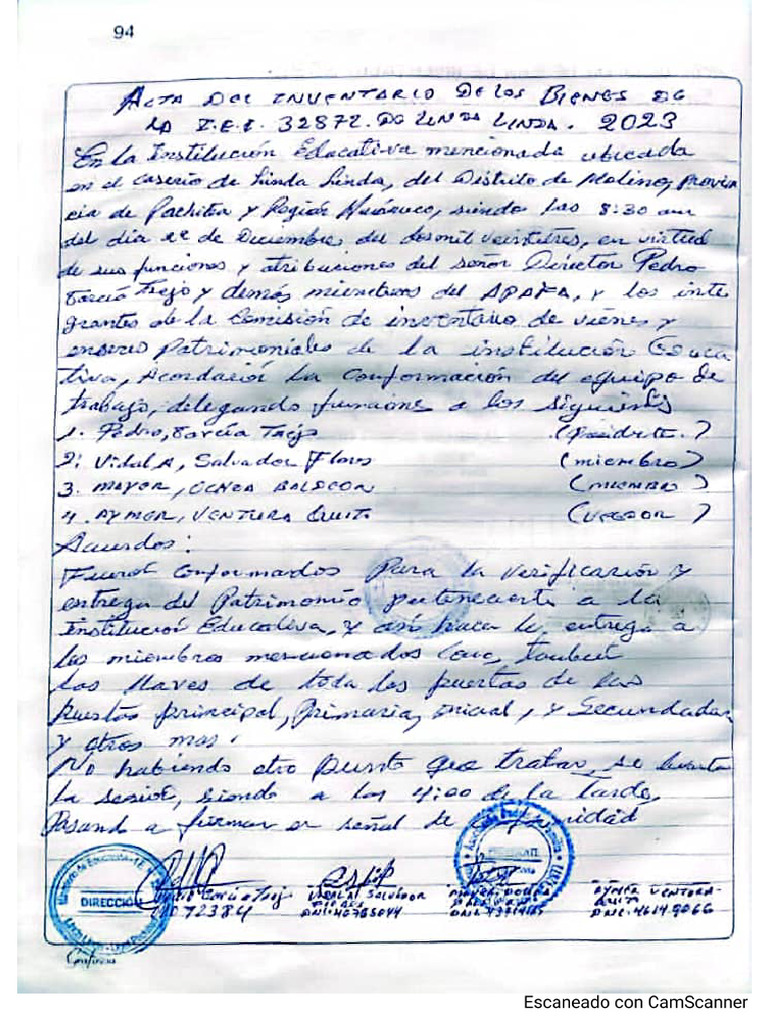 94
ACTA DEL INVENTARIO DE LOS BIENES DE
LA I.E.I. 32872. DE LINDA LINDA. 2023
En la Institución Educativa mencionada ubicada
en el caserio de Linda Linda, del Distrito de Molino, Provin
cia de Pachitea y Región Huánuco, siendo las 8:30 am
del dia de Diciembre, del dosmil veintitres, en virtud
de sus funciones y atribuciones del señor Director Pedro
Garcia Trejo y demás miembros del APAFA, y los inte
grantes de la Comisión de inventario de vienes y
enseres Patrimoniales de la institución Educa
tiva, Acordarón la conformación del equipo de
trabajo, delegando funcione a los siguients
1. Pedro, Garcia Trejo (Presidente.)
2. Vidal, A, Salvador Flores (miembro)
3. MAYER, OCHOA (MIEMBRO)
4. AYMER, VENTURA QUITO ( )
Acuerdos:
Fueron conformados Para la verificación y
entrega del Patrimonio perteneciente a la
Institución Educativa, y asi hacer la entrega a
los miembros mencionados como, tambien
las llaves de toda las puertas de las
puertas principal, Primaria, inicial, y Secundaria
y otros mas.
No habiendo otro punto que tratar, se levanta
la sesión, siendo a las 4:00 de la Tarde,
Pasando a firmar en señal de conformidad
DIRECCIÓN
SALVADOR
AYMER VENTURA
QUITO
Escaneado con CamScanner